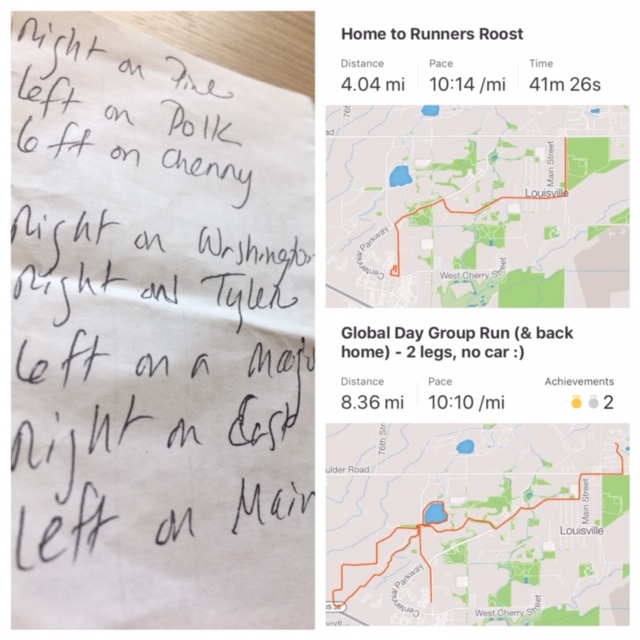 Right on Pine
Left on Polk
left on Cherry
Right on Washington
Right on Tyler
Left on a Majo
Right on East
Left on Main
Home to Runners Roost
Distance Pace Time
4.04 mi 10:14 /mi 41m 26s
76t
ad
Main Street
Louisville
Centennial Parkway
West Cherry Street
Global Day Group Run (& back
home) - 2 legs, no car :)
Distance Pace Achievements
8.36 mi 10:10 /mi 2
76th Str
ulder Road
Main Street
Louisville
Centennial Parkway
West Cherry Street